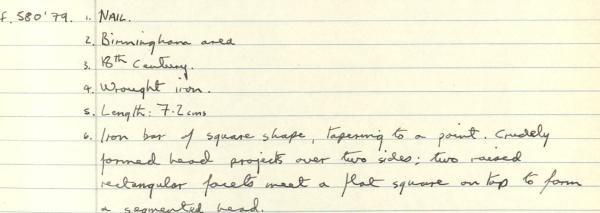 F. 580'79. 1. NAIL.
2. Birmingham area
3. 18th Century.
4. Wrought iron.
5. Length: 7.2 cms
6. Iron bar of square shape, tapering to a point. Crudely
formed head projects over two sides; two raised
rectangular facets meet a flat square on top to form
a segmented head.